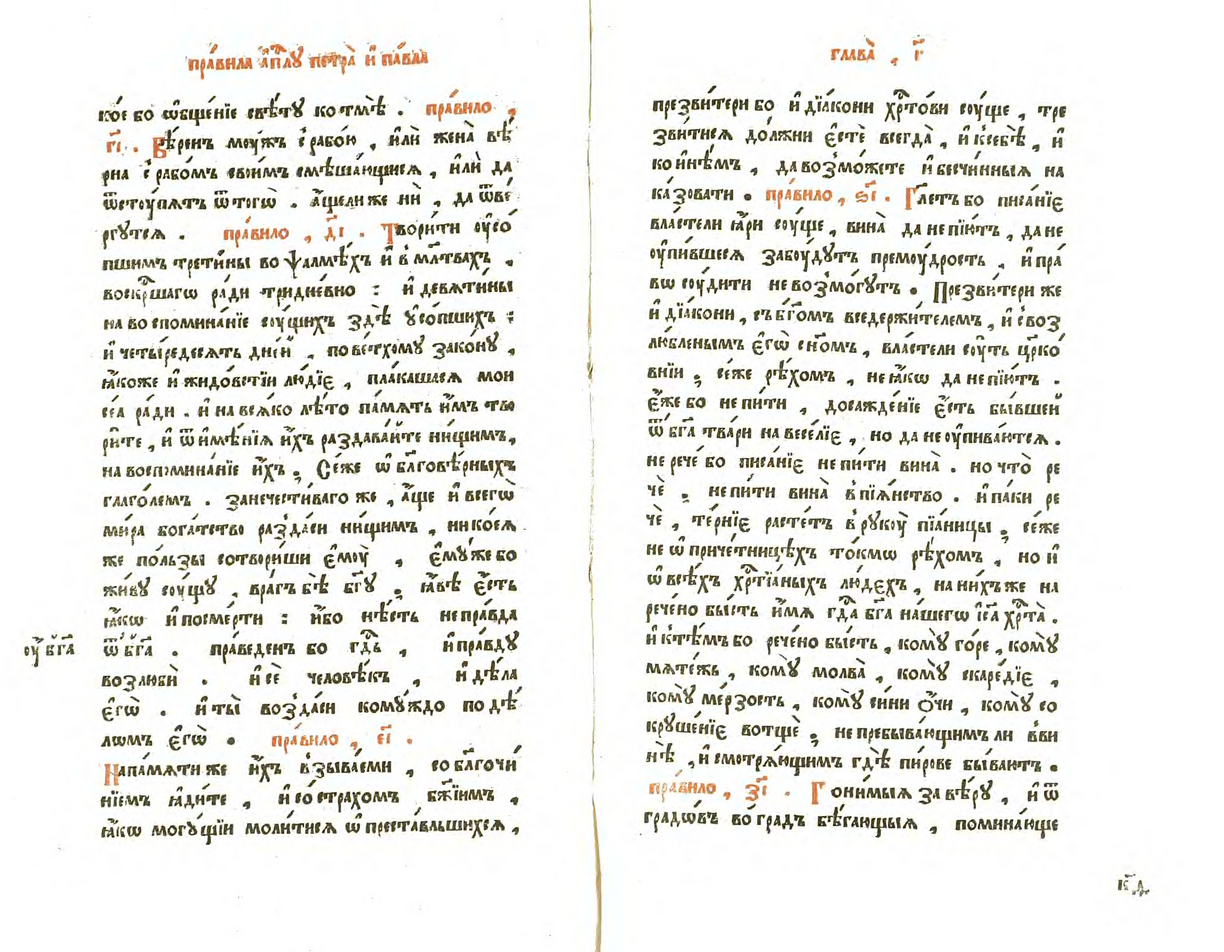 пра́вила а҆п҃лꙋ петра̀ и҆ па́вла
ко́е бо ѡ҆бще́нїе свѣ́тꙋ ко тмѣ̀ . пра́вило ,
г҃і . Вѣ́ренъ моу́жъ с рабо́ю , и҆лѝ жена̀ вѣ́
рна с рабо́мъ свои́мъ смѣша́ющиеся , и҆лѝ да
ѿстоу́пятъ ѿ тогѡ̀ . а҆́ще ли же нѝ , да ѿве́
ргꙋтся . пра́вило , д҃і . Твори́ти оу҆со́
пшимъ трети́ны во ѱалмѣ́хъ и҆ в мл҃твахъ ,
воскр҃шагѡ ра́ди тридне́вно : и҆ девяти́ны
на воспомина́нїе соу́щихъ здѣ̀ ᲂу҆со́пшихъ :
и҆ четы́редесять дне́й , по ве́тхомꙋ зако́нꙋ ,
ꙗ҆́коже и҆ жидо́встїи лю́дїє , пла́кашася мои
се́а ра́ди . и҆ на вся́ко лѣ́то па́мять и҆̀мъ тво
ри́те , и҆ ѿ и҆мѣ́нїя и҆́хъ раздава́йте ни́щимъ,
на воспомина́нїе и҆́хъ , Се́же ѡ҆ бл҃говѣ́рныхъ
глаго́лемъ . за нечести́ваго же , а҆́ще и҆ всегѡ̀
ми́ра бога́тство разда́си ни́щимъ , ни ко́ея
же по́льзы сотвори́ши є҆мꙋ̀ , є҆мꙋ́же бо
жи́вꙋ соу́щꙋ , вра́гъ бѣ̀ бг҃ꙋ , ꙗ҆́вѣ є҆́сть
ꙗ҆́кѡ и҆ по сме́рти : и҆́бо нѣ́сть непра́вда
ѿ бг҃а . пра́веденъ бо гд҃ь , и҆ пра́вдꙋ
возлюбѝ . и҆ сѐ человѣ́къ , и҆ дѣ́ла
є҆гѡ̀ . и҆ ты̀ возда́си комꙋ́ждо по дѣ́
лѡмъ є҆гѡ̀ . пра́вило , є҃і .
На па́мяти же и҆́хъ взыва́еми , со бл҃гочи́
нїемъ ꙗ҆ди́те , и҆ со стра́хомъ бж҃їимъ ,
ꙗ҆́кѡ могꙋ́щїи моли́тися ѡ҆ преста́вльшихся ,
оу҆ бг҃а
глава̀ , г҃
презви́тери бо и҆ дїа́кони хр҃то́ви соу́ще , тре
зви́тися до́лжни є҆стѐ всегда̀ , и҆ к себѣ̀ , и҆
ко и҆нѣ́мъ , да возмо́жете и҆ бесчи́нныя на
каз́овати . пра́вило , ѕ҃і . Гл҃етъ бо писа́нїє
вла́стели ꙗ҆ри соу́ще , вина̀ да не пїю́тъ , да не
оу҆пи́вшеся забоу́дꙋтъ премоу́дрость , и҆ пра́
вѡ соуди́ти не возмо́гꙋтъ . Презви́тери же
и҆ дїа́кони , съ бг҃омъ вседержи́телемъ , и҆ с воз
лю́бленымъ є҆гѡ̀ сн҃омъ , вла́стели соу́ть цр҃ко́
внїи , се́же рѣ́хомъ , не ꙗ҆́кѡ да не пїю́тъ .
є҆́же бо не пи́ти , досажде́нїе є҆́сть бы́вшей
ѿ бг҃а тва́ри на весе́лїе , но да не оу҆пива́ются .
не рече́ бо писа́нїє не пи́ти вина̀ . но что̀ ре
чѐ , не пи́ти вина̀ в пїя́нство . и҆ па́ки ре
чѐ , те́рнїє расте́тъ в рꙋкоу̀ пїа́ницы , се́же
не ѡ҆ приче́тницѣхъ то́кмѡ рѣ́хомъ , но и҆
ѡ҆ всѣ́хъ хр҃тїа́ныхъ лю́дєхъ , на ни́хъ же на
рече́но бы́сть и҆́мя гд҃а бг҃а на́шегѡ і҆с҃а хр҃та̀ .
и҆ к тѣ́мъ бо рече́но бы́сть , комꙋ̀ го́ре , комꙋ̀
мяте́жь , комꙋ̀ молва̀ , комꙋ̀ скаре́дїє ,
комꙋ̀ ме́рзость , комꙋ̀ си́ни ѻ҆́чи , комꙋ̀ со
крꙋше́нїє вотщѐ , не пребыва́ющимъ ли в ви
нѣ̀ , и҆ смотря́ющимъ гдѣ̀ пи́рове быва́ютъ .
пра́вило , з҃і . Гони́мыя за вѣ́рꙋ , и҆ ѿ
градѡ́въ во гра́дъ бѣ́гающыя , помина́юще
к҃д